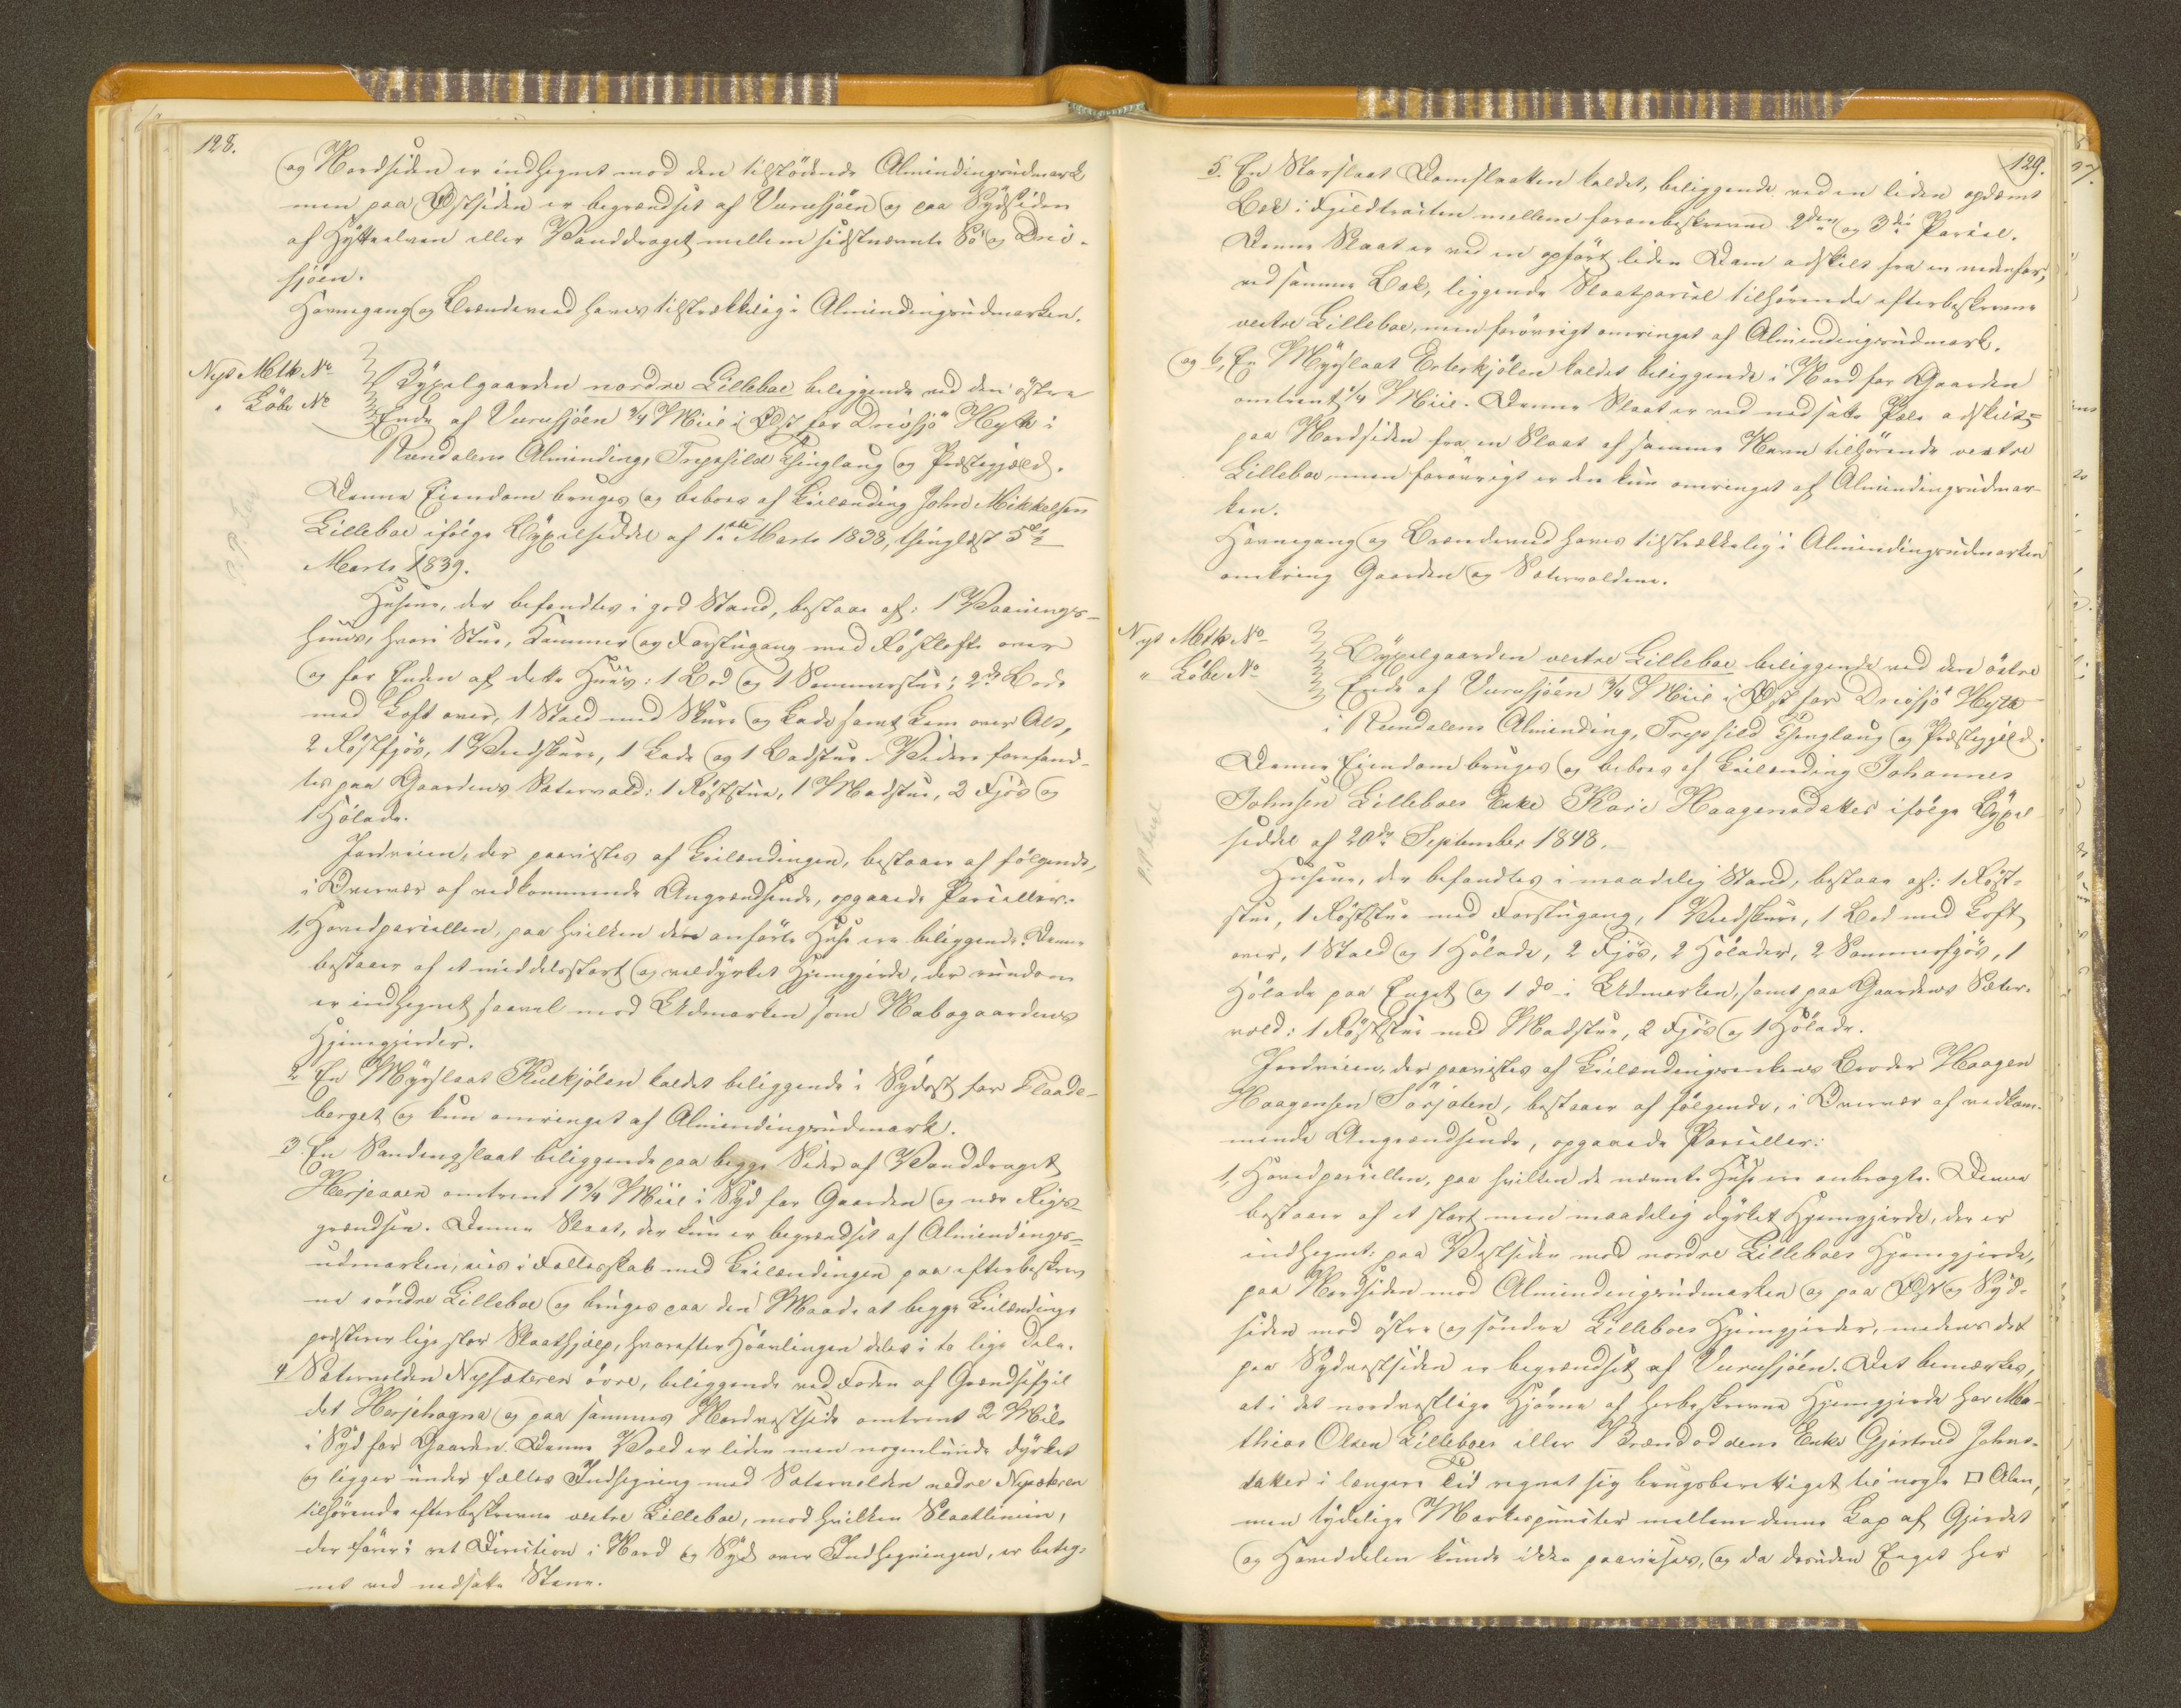 128.
og Nordsiden er indhegnet mod den tilstødende Almindingsudmark
men paa Østsiden er begrændset af Vurusjöen og paa Sydsiden
af Hytteelven eller Vanddraget mellem sidstnævnte Sö og Drev-
sjöen.
Havnegang og Brændeved haves tilstrækkelig i Almindingsudmarken.
Nyt Matk No
" Löbe No
Bÿxelgaarden nordre Lilleboe beliggende ved den östre
Ende af Vurusjöen 3/4 Miil i Øst for Drevsjö Hytte i
Rendalens Alminding, Tryssild Thinglaug og Præstegjæld.
Denne Eiendom bruges og beboes af Leilænding John Mikkelsen
Lilleboe ifölge Bÿxelseddel af 1ste Marts 1838, thinglæst 5te
Marts 1839.
Husene, der befandtes i god Stand, bestaar af: 1 Vaanings-
huus, hvori Stue, Kammer og Forstugang med Röstloft over
og for Enden af dette Huus: 1 Bod og 1 Sommerstue; 2de Boder
med Loft over, 1 Stald med Skuur og Lade samt Lem over Alt,
2 Röstfjös, 1 Vedskuur, 1 Lade og 1 Badstue. Videre forefand-
tes paa Gaardens Sætervold: 1 Röststue, 1 Madstue, 2 Fjös og
1 Hölade.
Jordveien, der paavistes af Leilændingen, bestaaer af fölgende,
i Overvær af vedkommende Angrændsende, opgaaede Parceller:
1, Hovedparcellen, paa hvilken de anförte Huse ere beliggende. Denne
bestaaer af et middelsstort og veldÿrket Hjemgjerde, der rundom
er indhegnet saavel mod Udmarken som Nabogaardenes
Hjemgjerder.
2 En Mÿrslaat Kulkjölen kaldet beliggende i Sydost for Flaade-
berget og kun omringet af Almindingsudmark.
3. En Vandengslaat beliggende paa begge Sider af Vanddraget
Herjeaaen omtrent 1 3/4 Miil i Syd for Gaarden og nær Rigs-
grændsen. Denne Slaat, der kun er begrændset af Almindings-
udmarken, eies i Fællesskab med Leilændingen paa efterbeskrev
ne söndre Lilleboe og bruges paa den Maade at begge Leilændinge
præsterer lige stor Slaathjælp, hvorefter Höavlingen deles i to lige Dele.
4 Sætervolden Nysæteren övre, beliggende ved Foden af Grændsefjel
det Herjehogna og paa sammes Nordvestside omtrent 2 Mile
i Syd for Gaarden. Denne Vold er liden men nogenlunde dÿrket
og ligger under fælles Indhegning med Sætervolden nedre Nysæteren
tilhörende efterbeskrevne vestre Lilleboe, mod hvilken Skjellinien,
der förer i ret Direction i Nord og Syd over Indhegningen, er beteg-
net ved nedsatte Stene.
129.
5. En Starslaat Damslaatten kaldet, beliggende ved en liden opdæmt
Bæk i Fjeldtraiten mellem foranbeskrevne 2den og 3die Parcel.
Denne Slaat er ved en opfört liden Dam adskilt fra en nedenfor,
ved samme Bæk, liggende Slaatparcel tilhörende efterbeskrevne
vestre Lilleboe, men forövrigt omringet af Almindingsudmark.
og 6, En Mÿrslaat Erterkjölen kaldet beliggende i Nord for Gaarden
omtrent 1/4 Miil. Denne Slaat er ved nedsatte Pæle adskilt
paa Nordsiden fra en Slaat af samme Navn tilhörende vestre
Lilleboe, men forövrigt er den kun omringet af Almindingsudmar-
ken.
Havnegang og Brændeved haves tilstrækkelig i Almindingsudmarken
omkring Gaarden og Sætervoldene.
Nyt Matk No
" Löbe No
Bÿxelgaarden vestre Lilleboe beliggende ved den östre
Ende af Vurusjöen 3/4 Miil i Øst for Drevsjö Hytte
i Rendalens Alminding, Tryssild Thinglaug og Præstegjeld.
Denne Eiendom bruges og beboes af Leilænding Johannes
Johnsen Lilleboes Enke Kari Haagensdatter ifölge Bÿxel
seddel af 20de September 1848.
Husene, der befandtes i maadelig Stand, bestaar af: 1 Röst-
stue, 1 Röststue med Forstugang, 1 Vedskuur, 1 Bod med Loft
over, 1 Stald og 1 Hölade, 2 Fjös, 2 Hölader, 2 Sommerfjös, 1
Hölade paa Enget og 1 do i Udmarken, samt paa Gaardens Sæter-
vold: 1 Röststue med Madstue, 2 Fjös og 1 Hölade.
Jordveien, der paavistes af Leilændingsenkens Broder Haagen
Haagensen Sörjoten, bestaaer af fölgende, i Overvær af vedkom-
mende Angrændsende, opgaaede Parceller:
1, Hovedparcellen, paa hvilken de nævnte Huse ere anbragte. Denne
bestaaer af et stort men maadelig dÿrket Hjemgjerde, der er
indhegnet: paa Vestsiden mod nordre Lilleboes Hjemgjerde,
paa Nordsiden mod Almindingsudmarken og paa Øst og Syd-
siden mod östre og söndre Lilleboes Hjemgjerder, medens det
paa Sydvestsiden er begrændset af Vurusjöen. Det bemærkes,
at i det nordvestlige Hjörne af herbeskrevne Hjemgjerde har Ma-
thias Olsen Lilleboes eller Brændoddens Enke Gjertrud Johns-
datter i længere Tid regnet sig brugsberettiget til nogle □ Alen,
men tydelige Mærkespunkter mellem denne Lap af Gjerdet
og Hoveddelen kunde ikke paavises, og da desuden Enget her